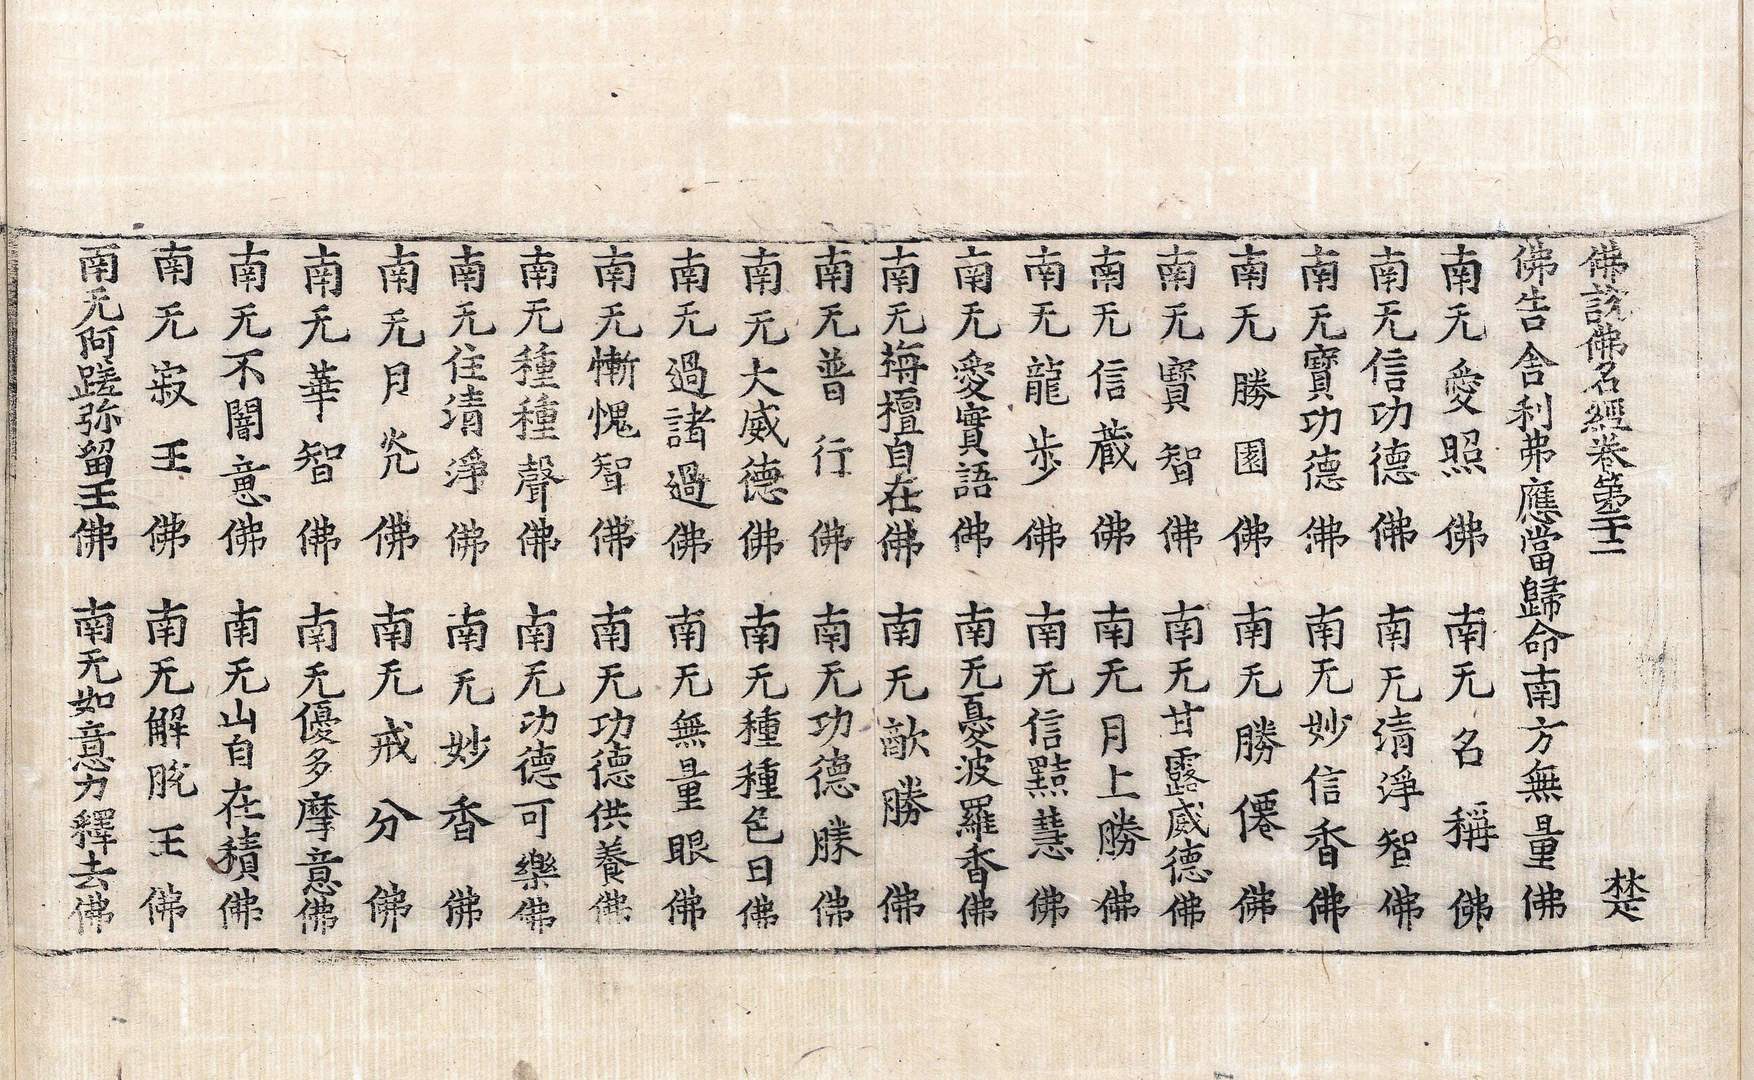 佛說佛名經卷第二十二 楚
佛告舍利弗應當歸命南方無量佛
南无愛照佛 南无名稱佛
南无信功德佛 南无清淨智佛
南无寶功德佛 南无妙信香佛
南无勝園佛 南无勝僊佛
南无寶智佛 南无甘露威德佛
南无信藏佛 南无月上勝佛
南无龍步佛 南无信黠慧佛
南无愛實語佛 南无憂波羅香佛
南无栴檀自在佛 南无敵勝佛
南无普行佛 南无功德勝佛
南无大威德佛 南无種種色日佛
南无過諸過佛 南无無量眼佛
南无慚愧智佛 南无功德供養佛
南无種種聲佛 南无功德可樂佛
南无住清淨佛 南无妙香佛
南无月光佛 南无戒分佛
南无華智佛 南无優多摩意佛
南无不闇意佛 南无山自在積佛
南无寂王佛 南无解脫王佛
南无阿蹉弥留王佛 南无如意力釋去佛